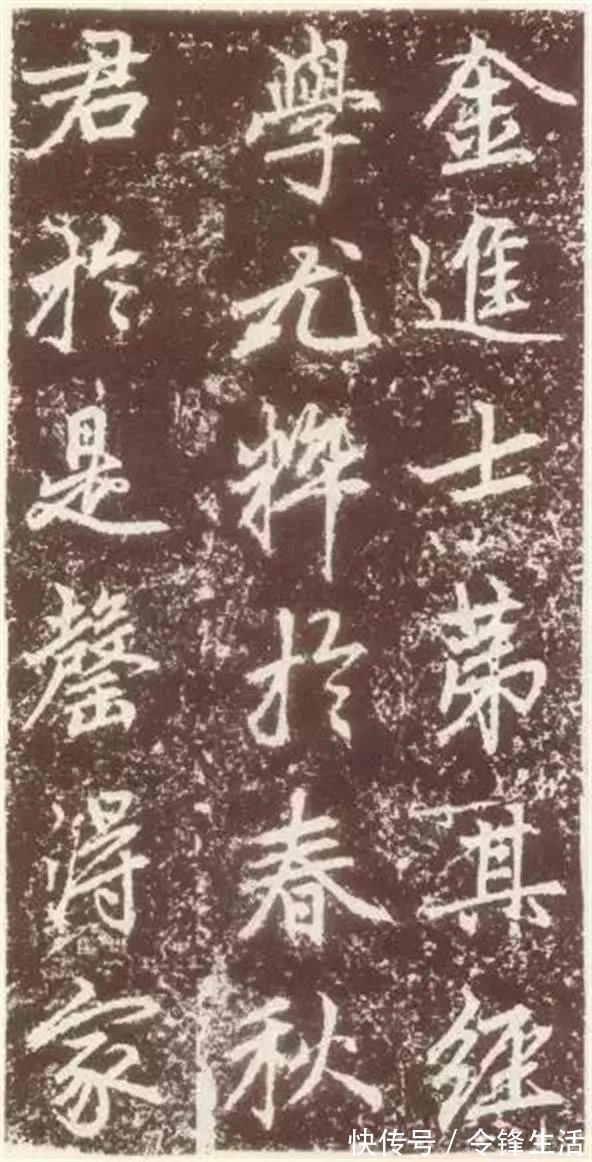 金進士第其經
學尤粹於春秋
君於是罄得家
快传号/令锋生活